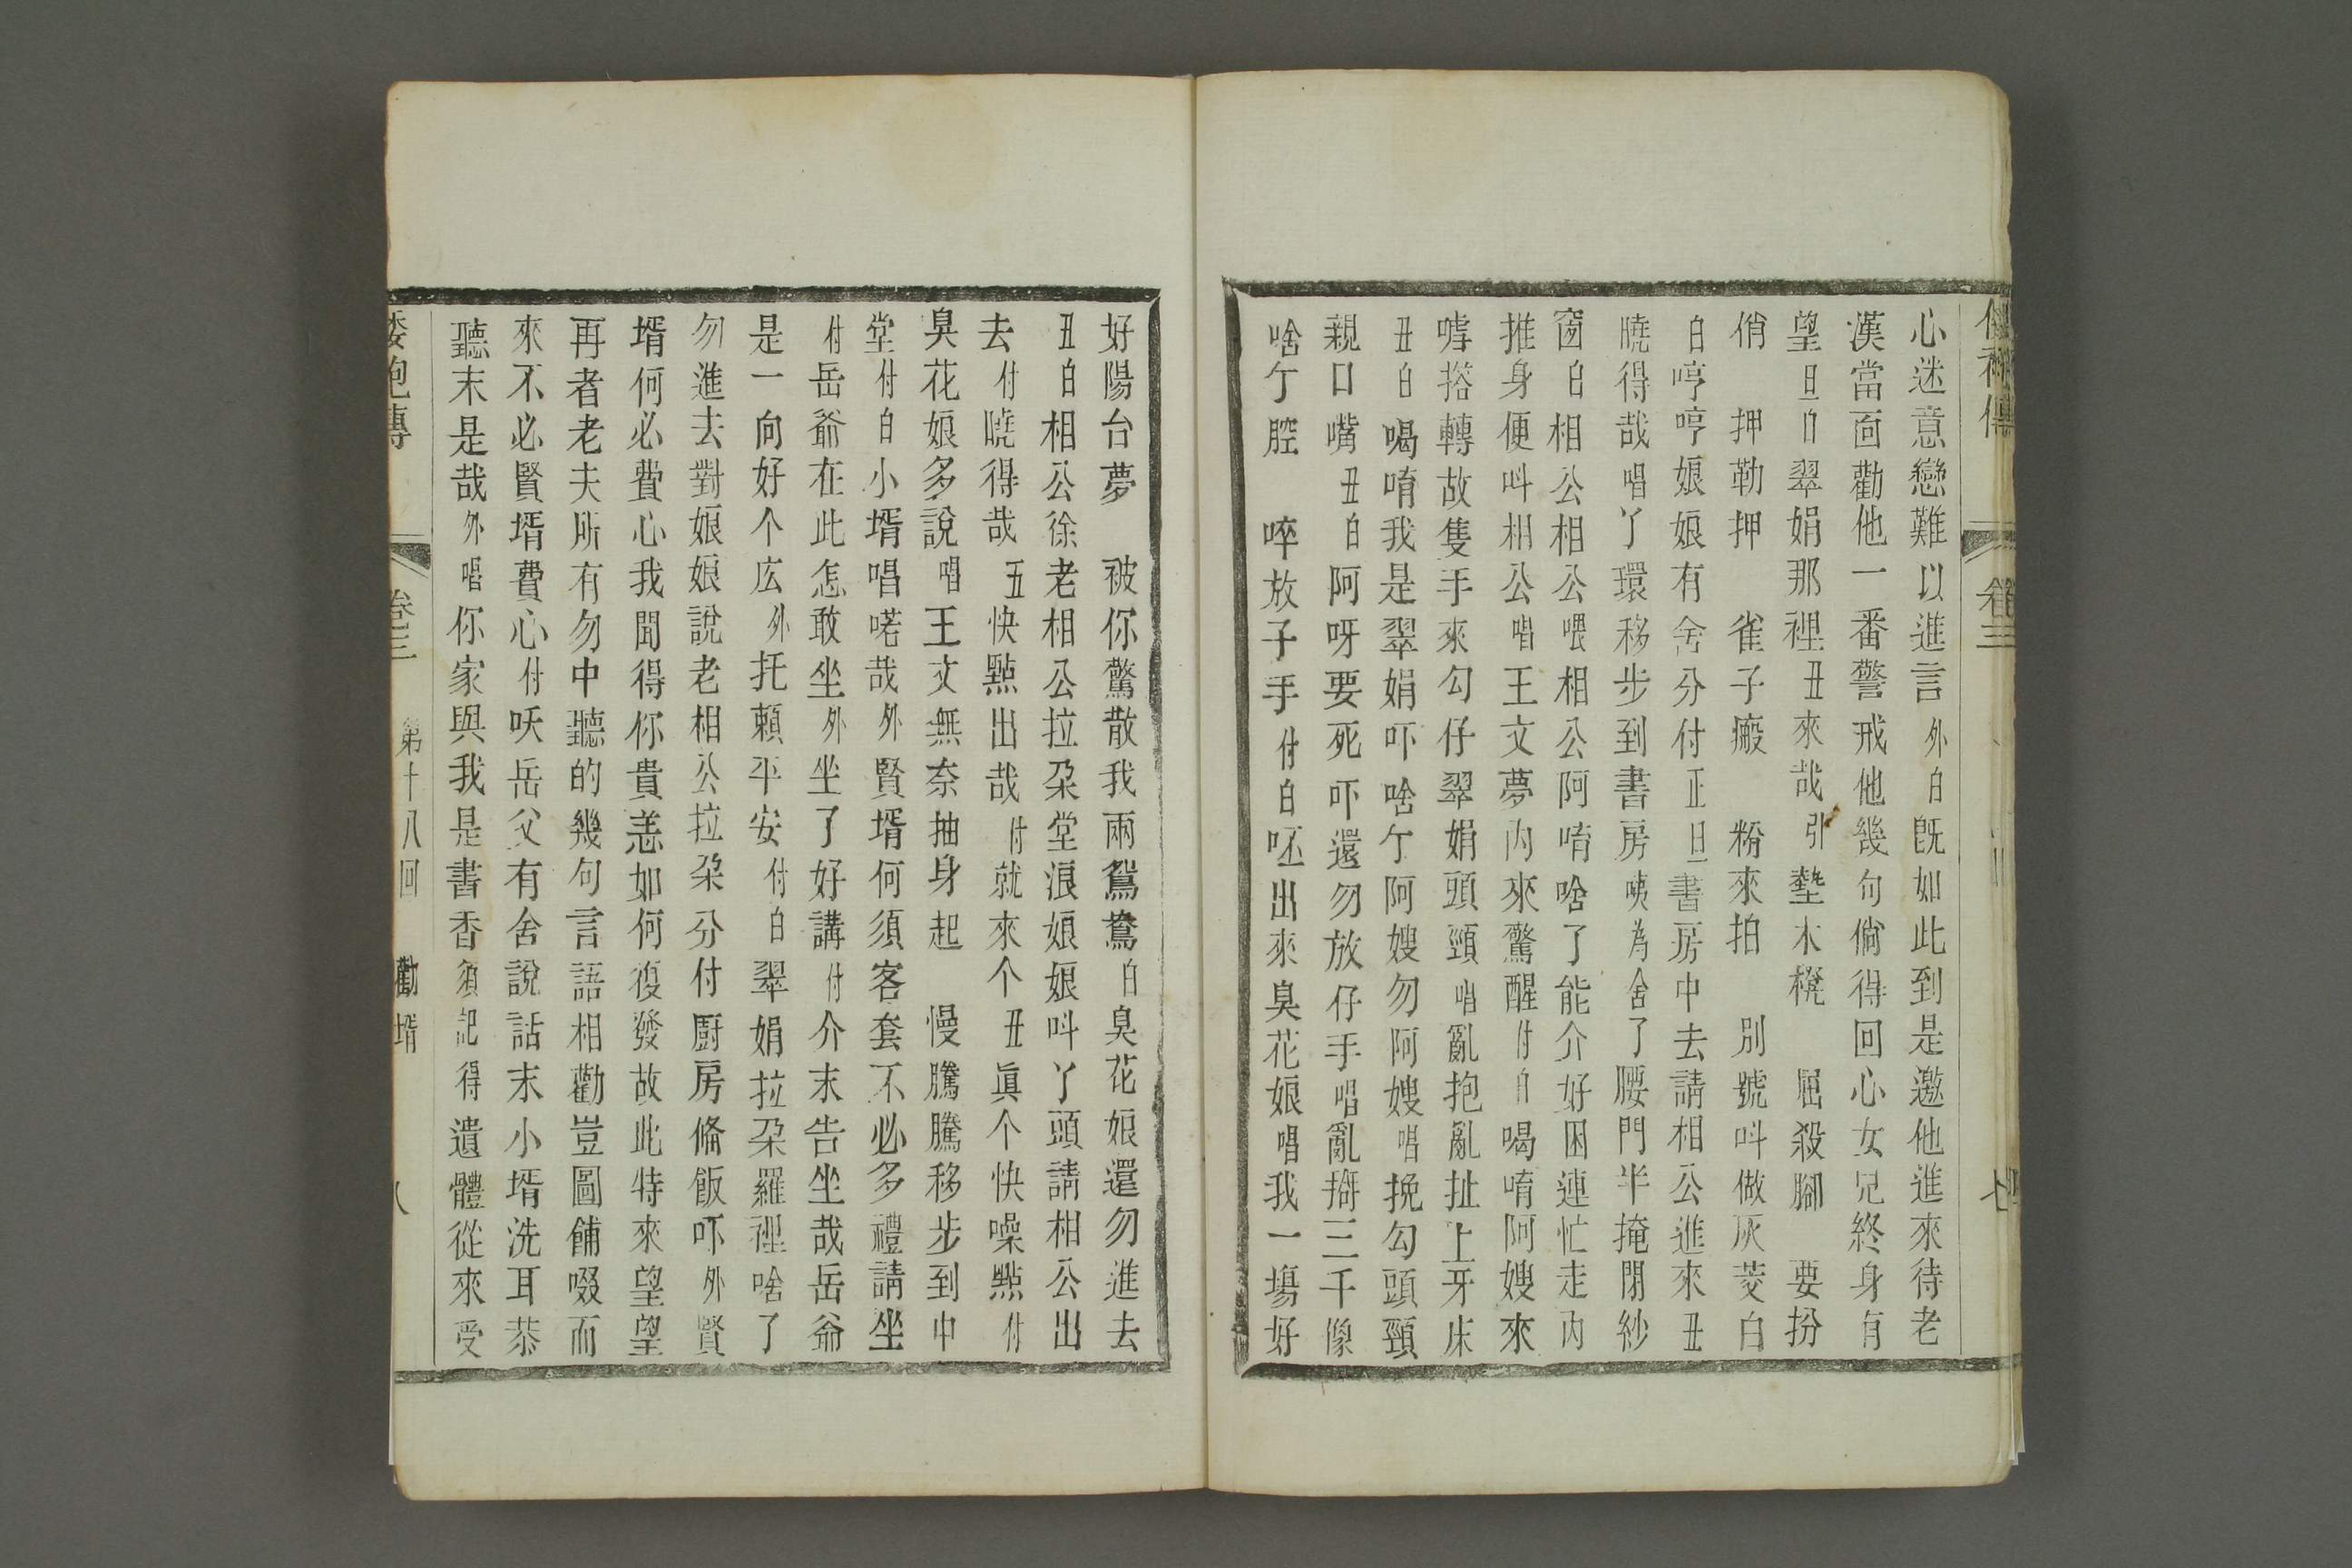 心迷意戀難以進言外白既如此到是邀他進來待老
漢當面勸他一番警戒他幾句倘得回心女兒終身有
望旦白翠娟那裡丑來哉引墊木櫈 屈殺腳 要扮
俏 押勒押 雀子瘢 粉來拍 別號呌做灰茭白
白哼哼娘娘有舍分付正旦書房中去請相公進來丑
曉得哉唱丫環移步到書房咦為舍了腰門半掩閉紗
窗白相公相公喂相公阿唷啥了能介好困連忙走內
推身便呌相公唱王文夢內來驚醒付白喝唷阿嫂來
嘑搭轉故隻手來勾仔翠娟頭頸唱亂抱亂扯上牙床
丑白喝唷我是翠娟吓啥亍阿嫂勿阿嫂唱挽勾頭頸
親口嘴丑白阿呀要死吓還勿放仔手唱亂搿三千像
啥亍腔 啐放子手付白呸出來臭花娘唱我一塲好
好陽台夢 被你驚散我兩鴛鴦白臭花娘還勿進去
丑白相公徐老相公拉朶堂浪娘娘呌丫頭請相公出
去付曉得哉 五快點出哉付就來个丑眞个快噪點付
臭花娘多說唱王文無奈抽身起 慢騰騰移步到中
堂付白小壻唱喏哉外賢壻何須客套不必多禮請坐
付岳爺在此怎敢坐外坐了好講付介末告坐哉岳爺
是一向好个庅外托賴平安付白翠娟拉朶羅裡啥了
勿進去對娘娘說老相公拉朶分付厨房俻飯吓外賢
壻何必費心我聞得你貴恙如何復發故此特來望望
再者老夫所有勿中聽的幾句言語相勸豈圖餔啜而
來不必賢壻費心付呅岳父有舍說話末小壻洗耳恭
聽末是哉外唱你家與我是書香須記得遺體從來受
倭袍傳 卷三 第十八回 勸壻 八